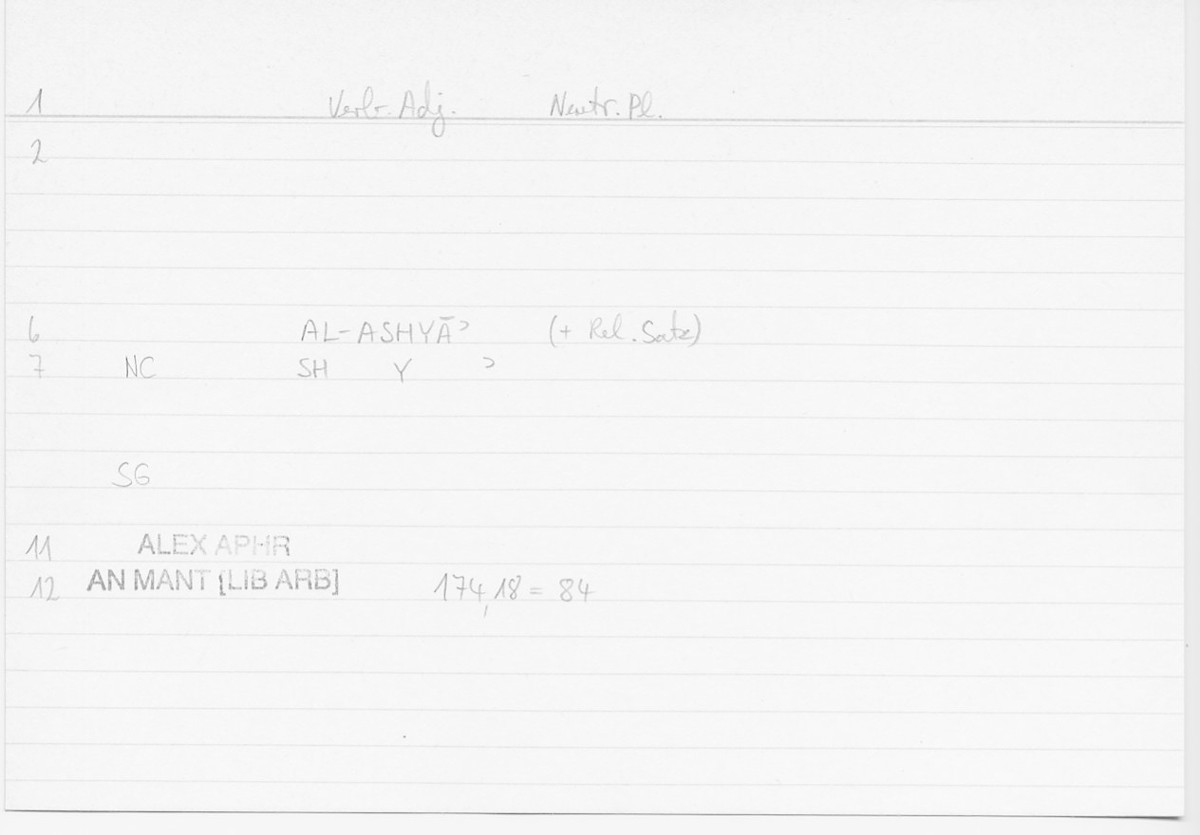 1 Verb. Adj. Neutr. Pl.
2
6 AL-ASHYĀʾ (+ Rel. Satz)
7 NC SH Y ʾ
SG
11 ALEX APHR
12 AN MANT [LIB ARB] 174,18 = 84